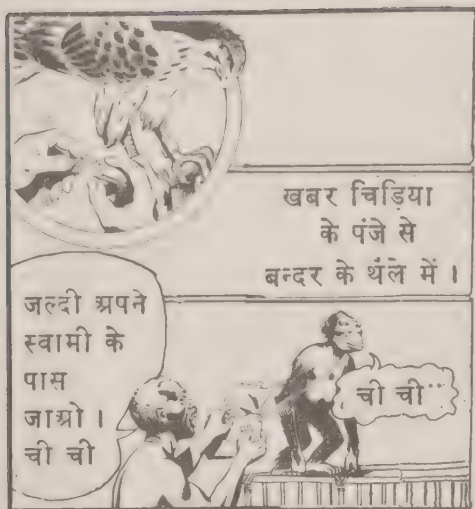 खबर चिड़िया
के पंजे से
बन्दर के थैले में।
जल्दी अपने
स्वामी के
पास
जाओ।
ची ची
ची ची...